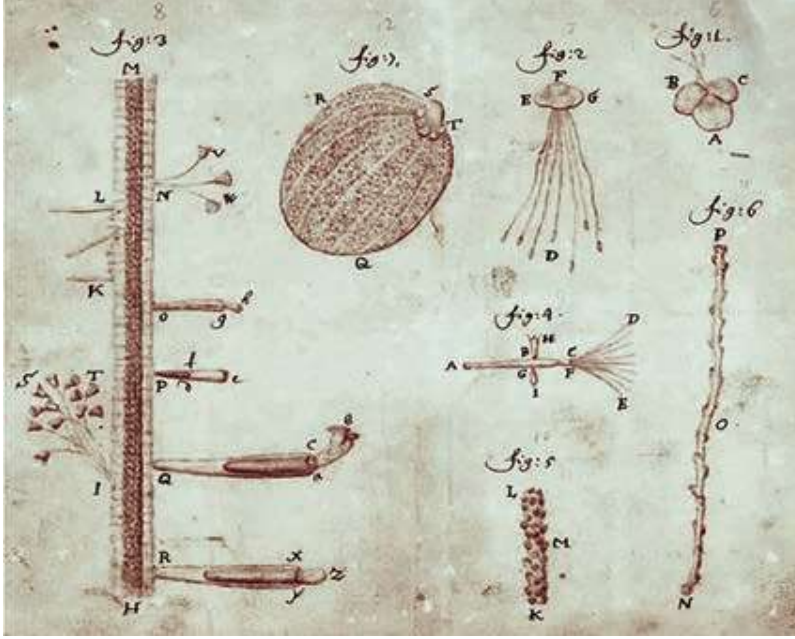 8
fig:3
M
L
N
V
W
K
O
g
h
P
d
e
S
T
I
Q
C
B
a
R
X
Z
y
H
fig:7.
R
S
T
Q
7
fig:2
F
E
G
D
6
fig:1.
B
C
A
fig:4.
D
B
H
A
C
G
F
I
E
fig:5
L
M
K
fig:6
P
O
N